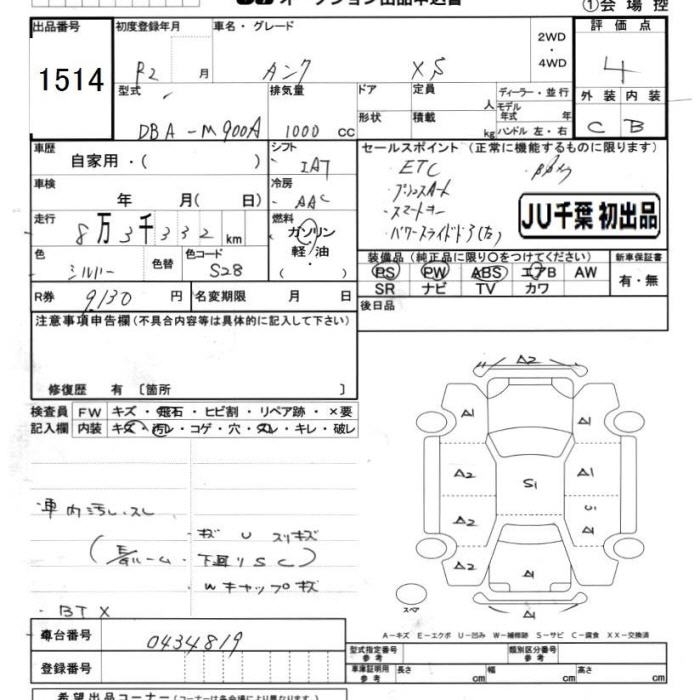 オークション出品申込書
①会場控
出品番号 初度登録年月 車名・グレード 2WD・4WD 評価点
1514 R2 月 タンク XS 4
型式 排気量 ドア 定員 人 ディーラー・並行 外装 内装
DBA-M900A 1000 cc 形状 積載 kg モデル年式 年 C B
ハンドル 左・右
車歴 シフト セールスポイント(正常に機能するものに限ります)
自家用・( ) IAT ・ETC
車検 冷房 ・プッシュスタート
年 月( 日) AAC ・スマートキー
走行 燃料 ・パワースライドドア(左)
8万3千332km ガソリン・軽油・( ) JU千葉 初出品
色 色替 色コード 装備品(純正品に限り○をつけてください) 新車保証書
シルバー S28 PS PW ABS エアB AW 有・無
SR ナビ TV カワ
R券 9130 円 名変期限 月 日 後日品
注意事項申告欄(不具合内容等は具体的に記入して下さい)
修復歴 有〔箇所 〕
検査員 FW キズ・飛石・ヒビ割・リペア跡・×要
記入欄 内装 キズ・汚レ・コゲ・穴・スレ・キレ・破レ
車内汚レ、スレ
・キズ U スリキズ
・下廻りSC
Wキャップキズ
・BTX
A2
A1 A1
A2 S1 A1
A2 U1 A1
A2 A1
A1
スペア
A−キズ E−エクボ U−凹み W−補修跡 S−サビ C−腐食 XX−交換済
車台番号 0434819 型式指定番号 参考 類別区分番号 参考
登録番号 車庫証明用 参考 長さ cm 幅 cm 高さ cm
希望出品コーナー(コーナーは各会場により異なります)